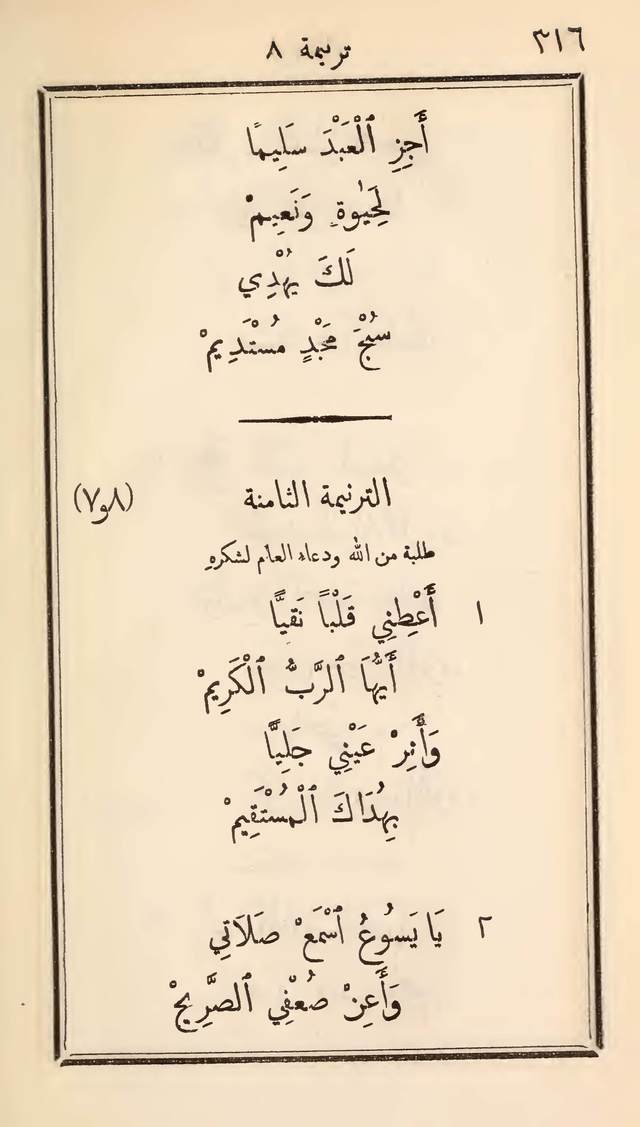 ٣١٦
ترنيمة ٨
أَجِزِ ٱلْعَبْدَ سَلِيمًا
لِحَيٰوةٍ وَنَعِيمْ
لَكَ يُهْدِي
سُبْحَ مَجْدٍ مُسْتَدِيمْ
الترنيمة الثامنة (٨و٧)
طلبة من الله ودعاء العام لشكرهِ
١ أَعْطِنِي قَلْبًا نَقِيًّا
أَيُّهَا ٱلرَّبُّ ٱلْكَرِيمْ
وَأَنِرْ عَيْنِي جَلِيًّا
بِهُدَاكَ ٱلْمُسْتَقِيمْ
٢ يَا يَسُوعُ ٱسْمَعْ صَلَاتِي
وَأَعِنْ ضُعْفِي ٱلصَّرِيحْ